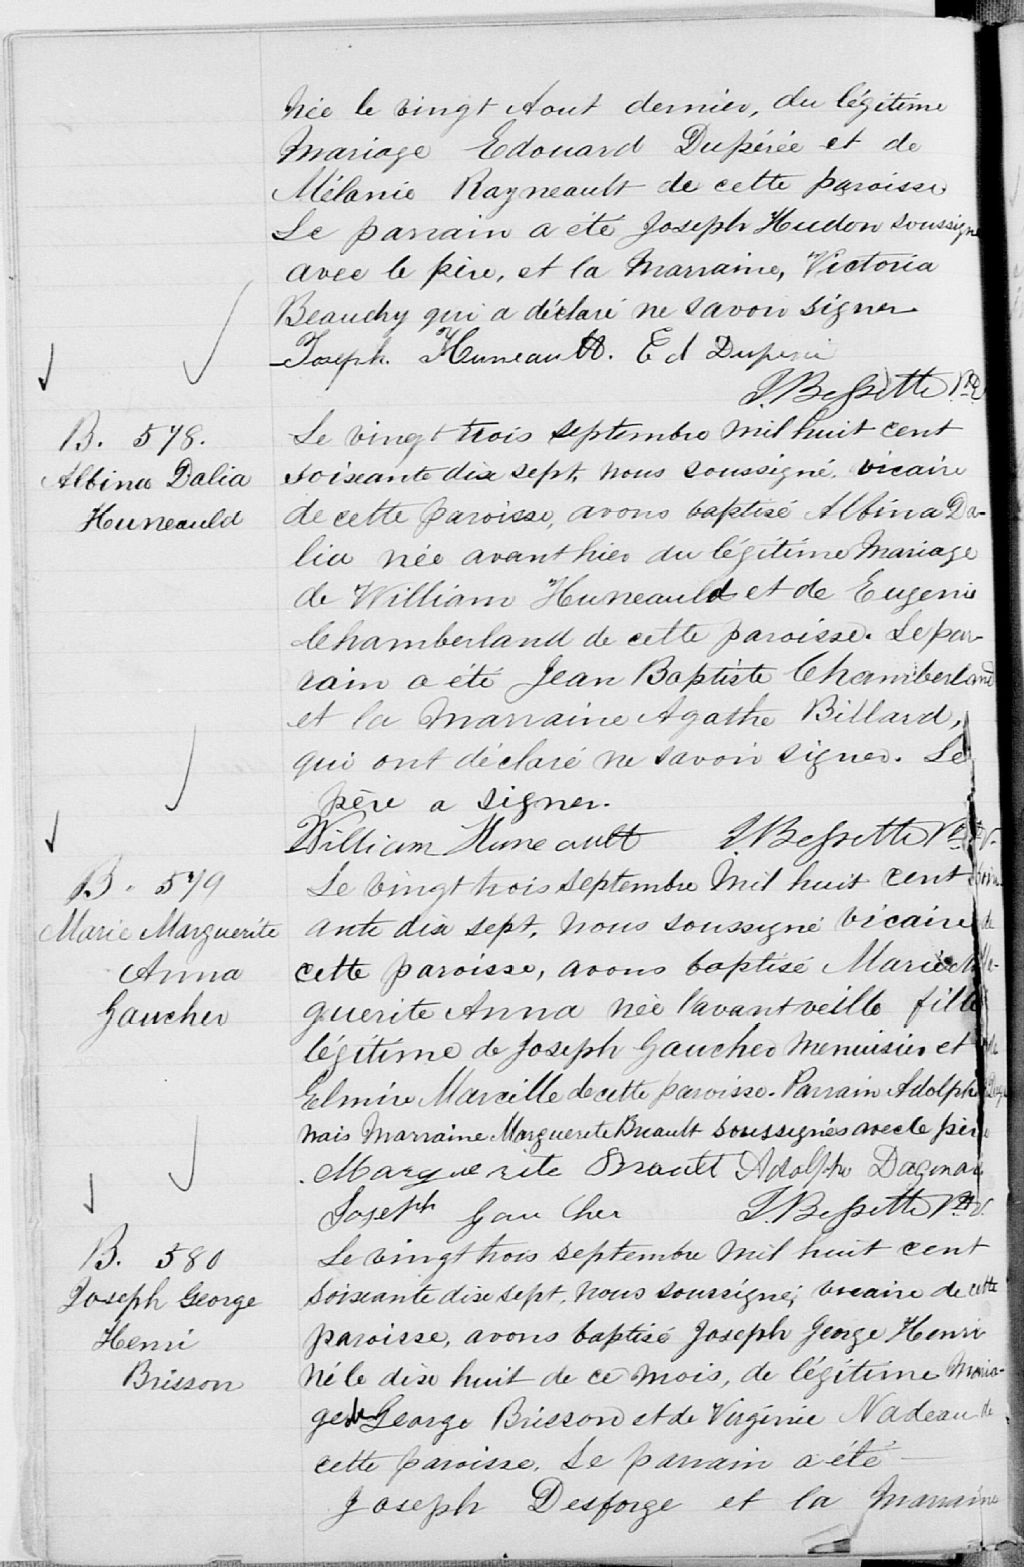 née le vingt Aout dernier, du légitime
Mariage Edouard Dupérée et de
Mélanie Rayneault de cette paroisse
Le parrain a été Joseph Hudon soussigné
avec le père, et la Marraine, Victoria
Beaudry qui a déclaré ne savoir signer
Joseph Huneault. Ed Duperé
J. Bessette Ptre
B. 578.
Albina Dalia
Huneauld
Le vingt trois septembre mil huit cent
soixante dix sept, nous soussigné, vicaire
de cette paroisse, avons baptisé Albina Da-
lia née avant hier du légitime Mariage
de William Huneauld et de Eugenie
Chamberland de cette paroisse. Le par-
rain a été Jean Baptiste Chamberland
et la Marraine Agathe Billard,
qui ont déclaré ne savoir signer. Le
père a signer.
William Huneault J. Bessette Ptre V.
B. 579
Marie Marguerite
Anna
Gaucher
Le vingt trois septembre mil huit cent soix
ante dix sept, nous soussigné vicaire de
cette paroisse, avons baptisé Marie Mar-
guerite Anna née l'avant veille fille
légitime de Joseph Gaucher Menuisier et de
Elmire Marcille de cette paroisse. Parrain Adolphe Dage
nais Marraine Marguerite Breault soussignés avec le père
Marguerite Brault Adolphe Dagenais
Joseph Gaucher J. Bessette Ptre V.
B. 580
Joseph George
Henri
Brisson
Le vingt trois septembre mil huit cent
soixante dix sept, nous soussigné, vicaire de cette
paroisse, avons baptisé Joseph George Henri
né le dix huit de ce mois, de légitime Maria-
ge de George Brisson et de Virginie Nadeau de
cette paroisse. Le parrain a été
Joseph Desforge et la Marraine